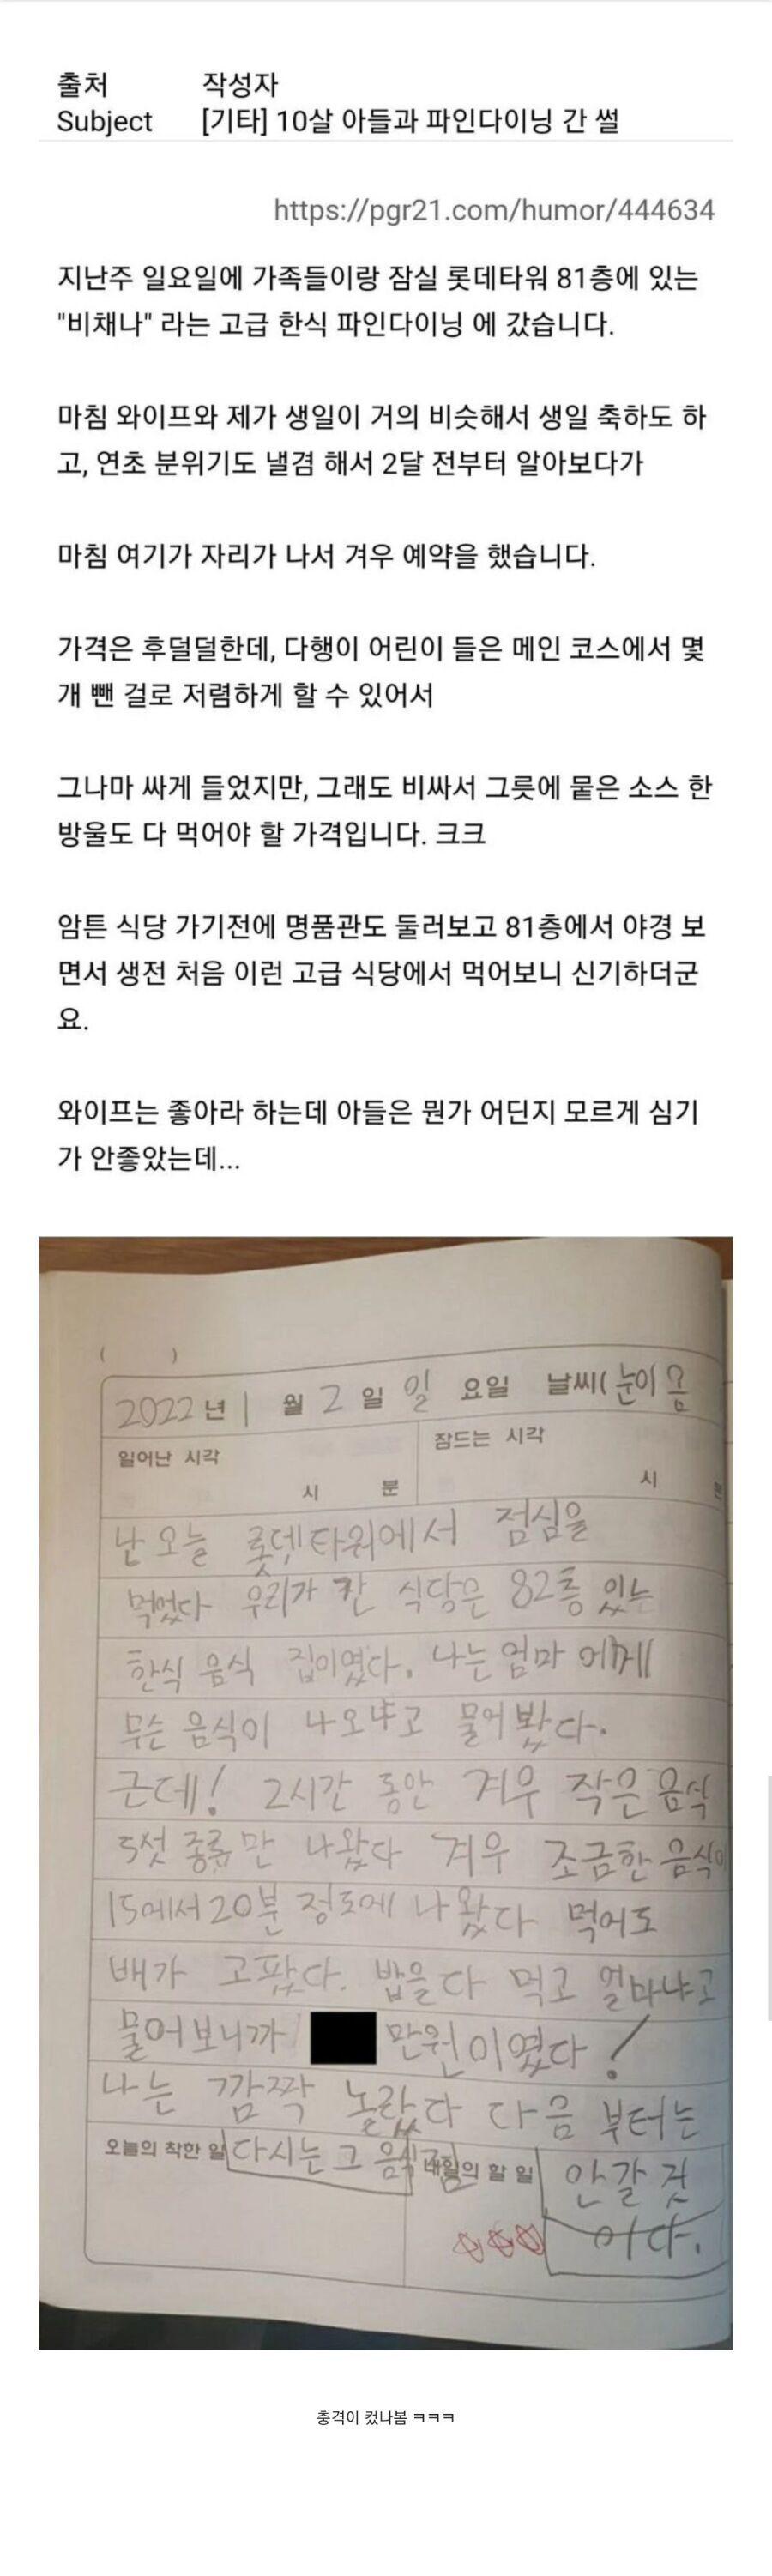 출처 작성자
Subject [기타] 10살 아들과 파인다이닝 간 썰
https://pgr21.com/humor/444634
지난주 일요일에 가족들이랑 잠실 롯데타워 81층에 있는
"비채나" 라는 고급 한식 파인다이닝 에 갔습니다.
마침 와이프와 제가 생일이 거의 비슷해서 생일 축하도 하
고, 연초 분위기도 낼겸 해서 2달 전부터 알아보다가
마침 여기가 자리가 나서 겨우 예약을 했습니다.
가격은 후덜덜한데, 다행이 어린이 들은 메인 코스에서 몇
개 뺀 걸로 저렴하게 할 수 있어서
그나마 싸게 들었지만, 그래도 비싸서 그릇에 뭍은 소스 한
방울도 다 먹어야 할 가격입니다. 크크
암튼 식당 가기전에 명품관도 둘러보고 81층에서 야경 보
면서 생전 처음 이런 고급 식당에서 먹어보니 신기하더군
요.
와이프는 좋아라 하는데 아들은 뭔가 어딘지 모르게 심기
가 안좋았는데...
( )
2022년 1 월 2 일 일 요일 날씨( 눈이 옴
일어난 시각 잠드는 시각
시 분 시
난 오늘 롯뎃타워에서 점심을
먹었다 우리가 간 식당은 82층 있는
한식 음식 집이였다. 나는 엄마 에게
무슨 음식이 나오냐고 물어봤다.
근데! 2시간 동안 겨우 작은 음식
5섯 종류만 나왔다 겨우 조금한 음식이
15에서 20분 정도에 나왔다 먹어도
배가 고팠다. 밥을 다 먹고 얼마냐고
물어보니까 만원이였다!
나는 깜짝 놀랐다 다음 부터는
오늘의 착한 일 다시는 그 음식 내일의 할 일 안갈 것
이다.
충격이 컸나봄 ㅋㅋㅋ